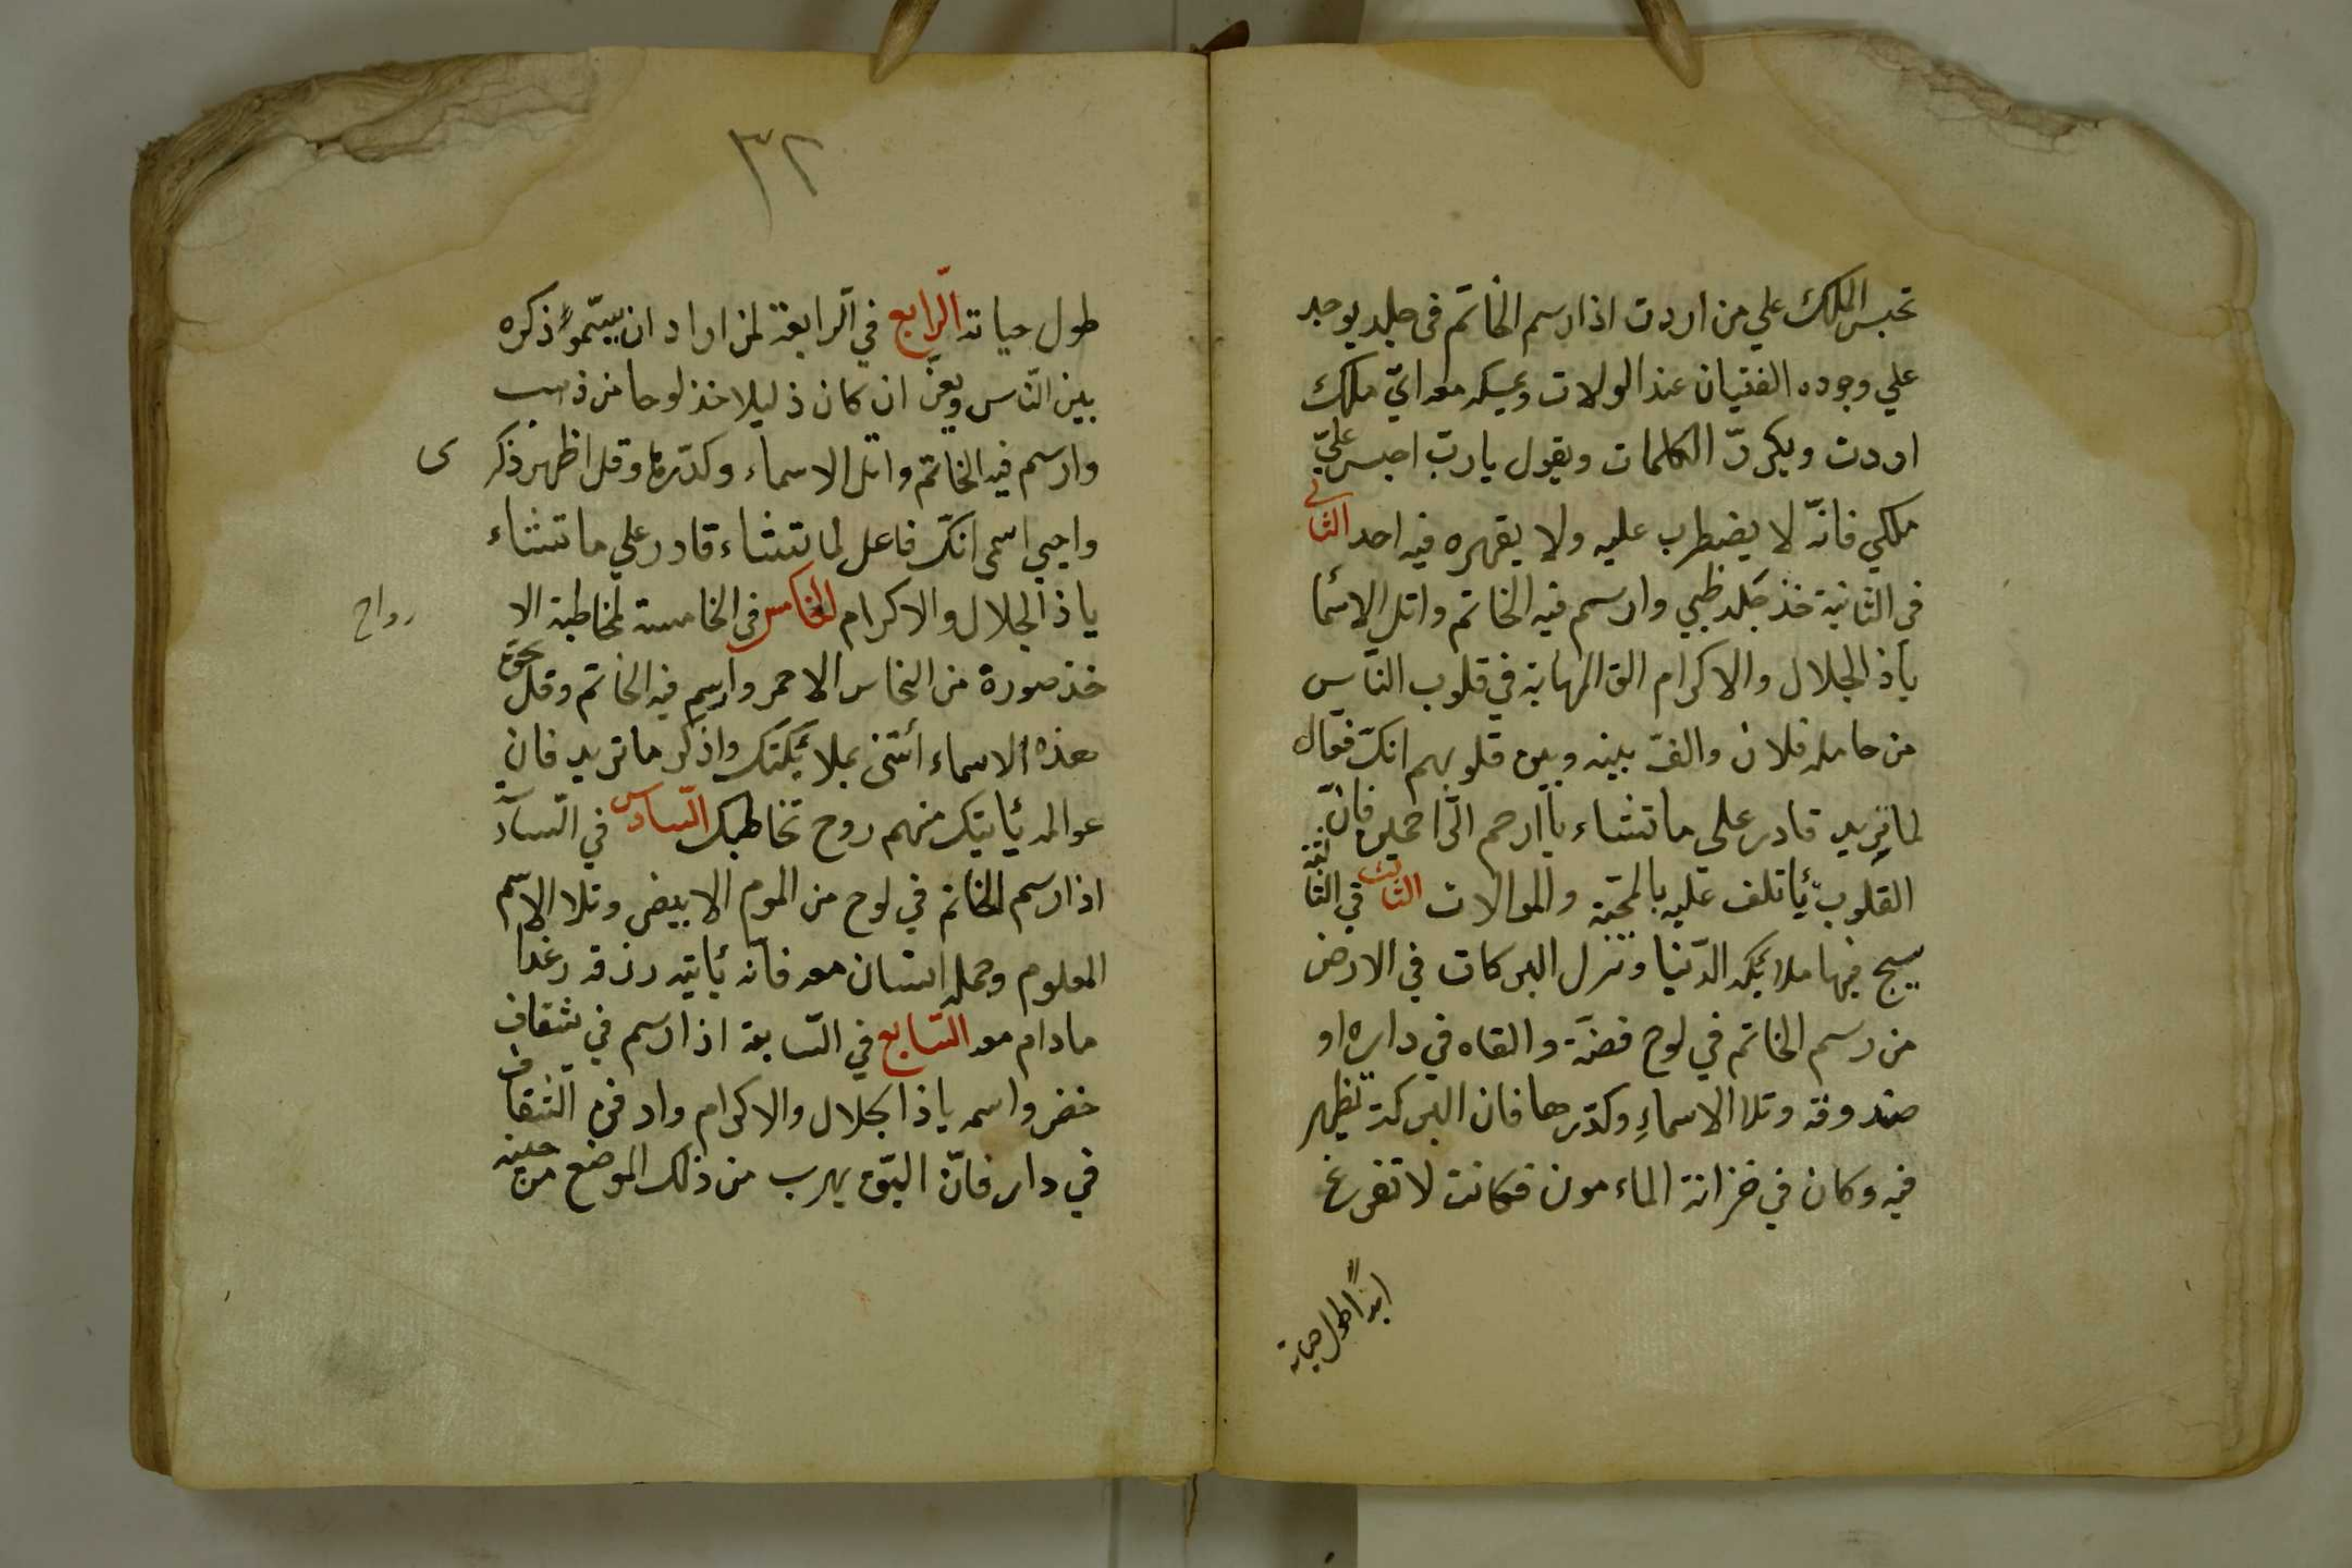 تحبس الملك علي من اردت اذا رسم الخاتم فى جلد يوجد
علي وجوده الفتيان عند الولات ويمسكه معه ايّ ملك
اردت ويكرّر الكلمات ويقول يا ربّ احبس عليّ
ملكي فانّه لا يضطرب عليه ولا يقهره فيه احد الثاني
في الثانية خذ جلد ظبي وارسم فيه الخاتم واتل الاسما
ياذ الجلال والاكرام الق المهابة في قلوب الناس
من حامله فلان والفّ بينه وبين قلوبهم انكّ فعّال
لما تريد قادر علي ما تشاء يا ارحم الرّاحمين فانّ
القلوب يأتلف عليه بالمحبّة والموالات الثالث في الثالثة
يسبح فيها ملائكه الدّنيا وتنزل البركات في الارض
من رسم الخاتم في لوح فضّة والقاه في داره او
صندوقه وتلا الاسماءِ وكرّرها فان البركة تظهر
فيه وكان في خزانة الماءمون فكانت لا تفرغ
ابداً طول حياته
٣٢
طول حياته الرّابع في الرابعة لمن اراد ان يسّموا ذكره
بين النّاس ويعزّ ان كان ذليلا خذ لوحا من ذهب
وارسم فيه الخاتم واتل الاسماء وكرّرها وقل اظهر ذكر ى
واحيي اسمى انكّ فاعل لما تشاء قادر علي ما تشاء
ياذ الجلال والاكرام الخامس فى الخامسة لمخاطبة الا رواح
خذ صورة من النحاس الاحمر وارسم فيه الخاتم وقل بحق
هذه الاسماء أئتنى بملائكتك واذكر ما تريد فان
عوالمه يأتيك منهم روح تخاطبك السّادس في السّادسة
اذا رسم الخاتم في لوح من الموم الابيض وتلا الاسم
المعلوم وحمله انسان معه فانه يأتيه رزقه رغدا
مادام معه السّابع في السّابعة اذا رسم في شقاف
خضر واسمه ياذ الجلال والاكرام وادفن الشقاف
في دار فانّ البقّ يهرب من ذلك الموضع من حينه